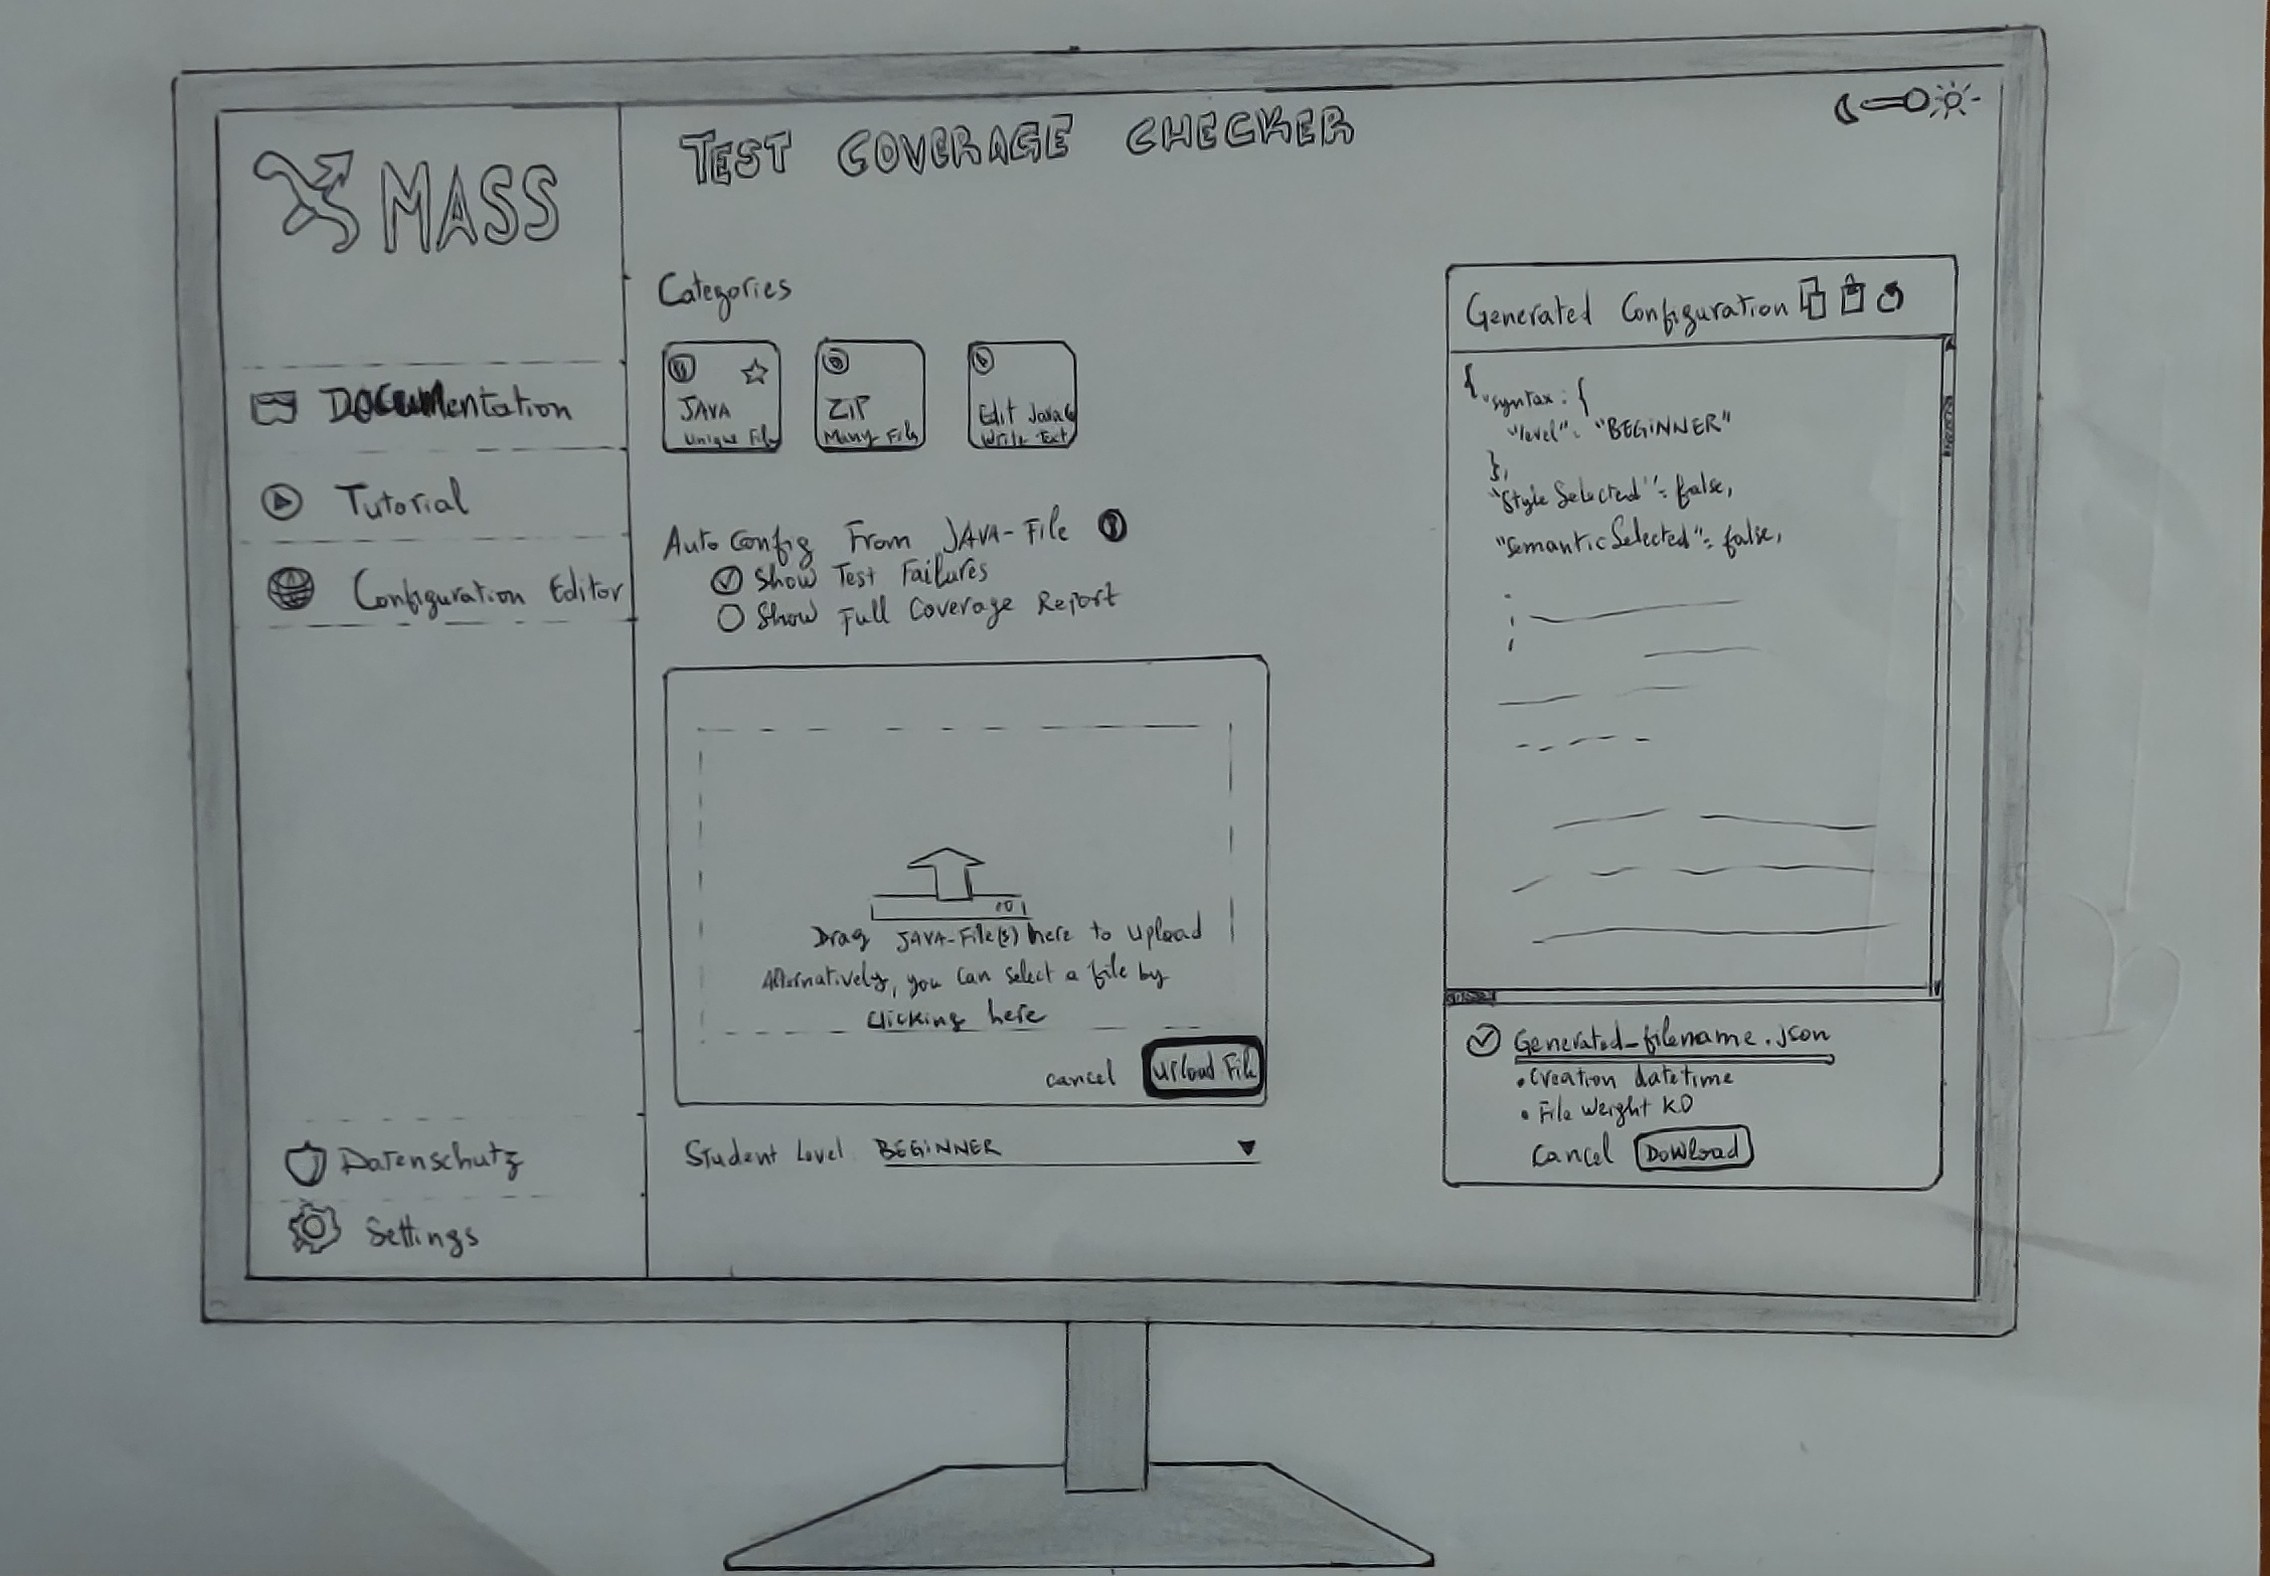 MASS
Documentation
Tutorial
Configuration Editor
Datenschutz
Settings
TEST COVERAGE CHECKER
Categories
JAVA
Unique File
ZIP
Many File
Edit Java
Write Text
Auto Config From JAVA-File
Show Test Failures
Show Full Coverage Report
Drag JAVA-File(s) here to upload
Alternatively, you can select a file by
clicking here
cancel
Upload File
Student Level BEGINNER
Generated Configuration
{
"syntax : {
"level": "BEGINNER"
},
"Style Selected" = false,
"Semantic Selected" = false,
Generated_filename.json
• Creation datetime
• File Weight KO
Cancel
Dowload